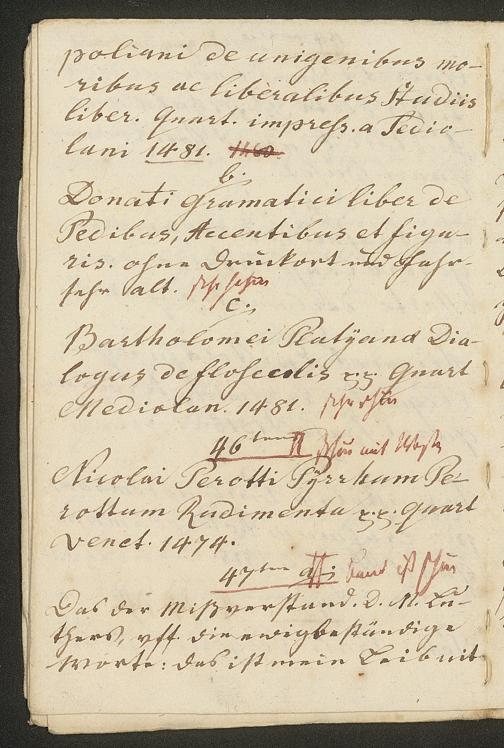 poliani de unigenibus mo-
ribus ac liberalibus Studiis
liber. Quart. impress. a Pedio-
lani 1481. 1460.
b.
Donati Gramatici liber de
Pedibus, Accentibus et figu-
ris. ohne Druckort und Jahr.
sehr alt. sehr schön
c.
Bartholomei Platÿand Dia-
logus de flosculis xx. Quart
Mediolan. 1481. sehr schön
46ten schön mit
Nicolai Perotti Pÿrrhum Pe-
rottum Rudimenta xx. Quart
Venet. 1474.
47ten a; band ist schön
Das der Mißverstand. D. M. Lu-
thers, uff die ewigbeständige
Worte: das ist mein Leib nit